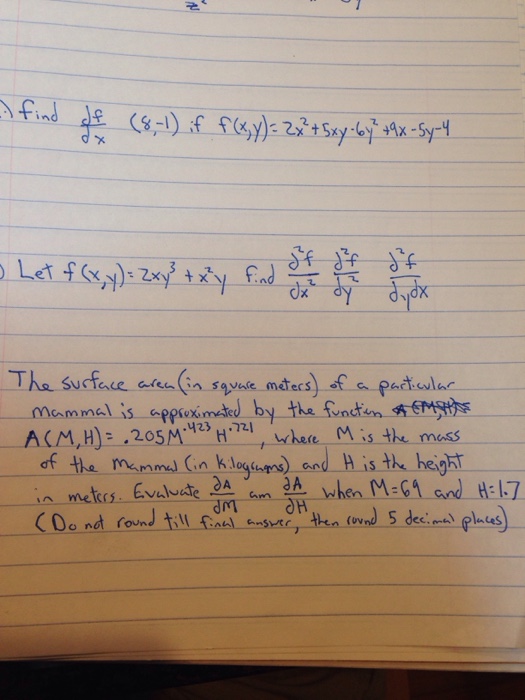 z²
.) find df/dx (8,-1) if f(x,y)= 2x²+5xy-6y²+9x-5y-4
) Let f(x,y)= 2xy³ + x²y find ∂²f/∂x² ∂²f/∂y² ∂²f/∂y∂x
The surface area (in square meters) of a particular
mammal is approximated by the function
A(M,H)= .205M^.423 H^.721, where M is the mass
of the mammal (in kilograms) and H is the height
in meters. Evaluate ∂A/∂M am ∂A/∂H when M=69 and H=1.7
(Do not round till final answer, then round 5 decimal places)